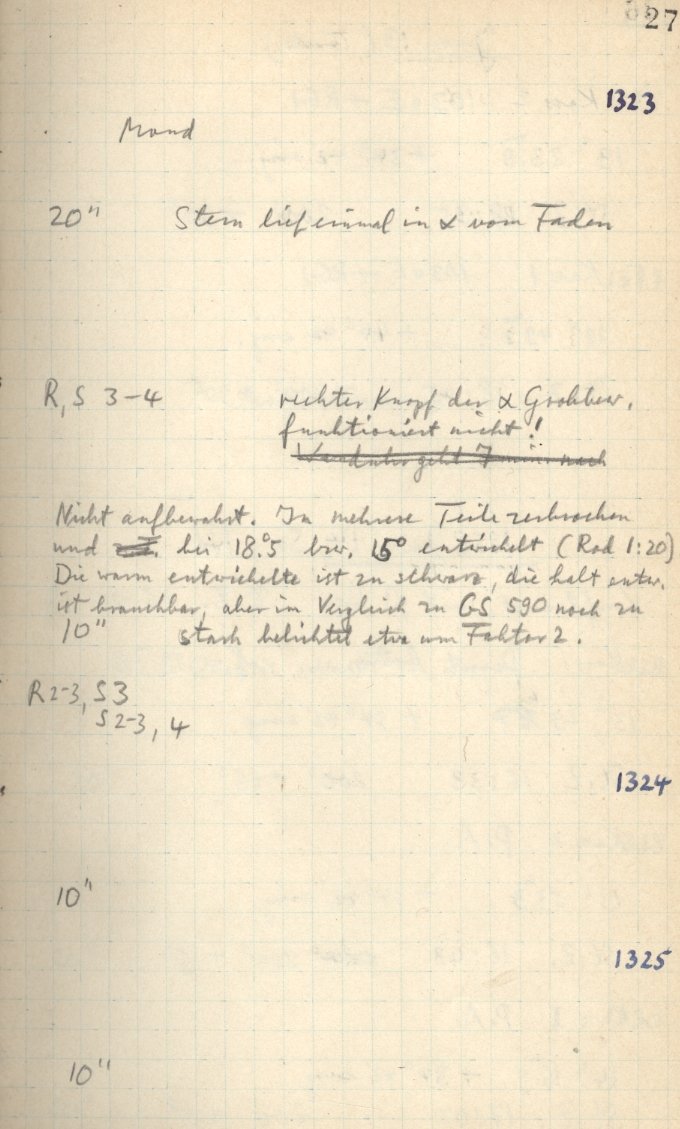 27
1323
Mond
20" Stern lief einmal in α vom Faden
R, S 3-4 rechter Knopf der α Grobbew.
funktioniert nicht!
Wanduhr geht 7 nach
Nicht aufbewahrt. In mehrere Teile zerbrochen
und bei 18.°5 bzw. 15° entwickelt (Rod 1:20)
Die warm entwickelte ist zu schwarz, die kalt entw.
ist brauchbar, aber im Vergleich zu GS 590 noch zu
10" stark belichtet etwa um Faktor 2.
R 2-3, S 3
S 2-3, 4
1324
10"
1325
10"